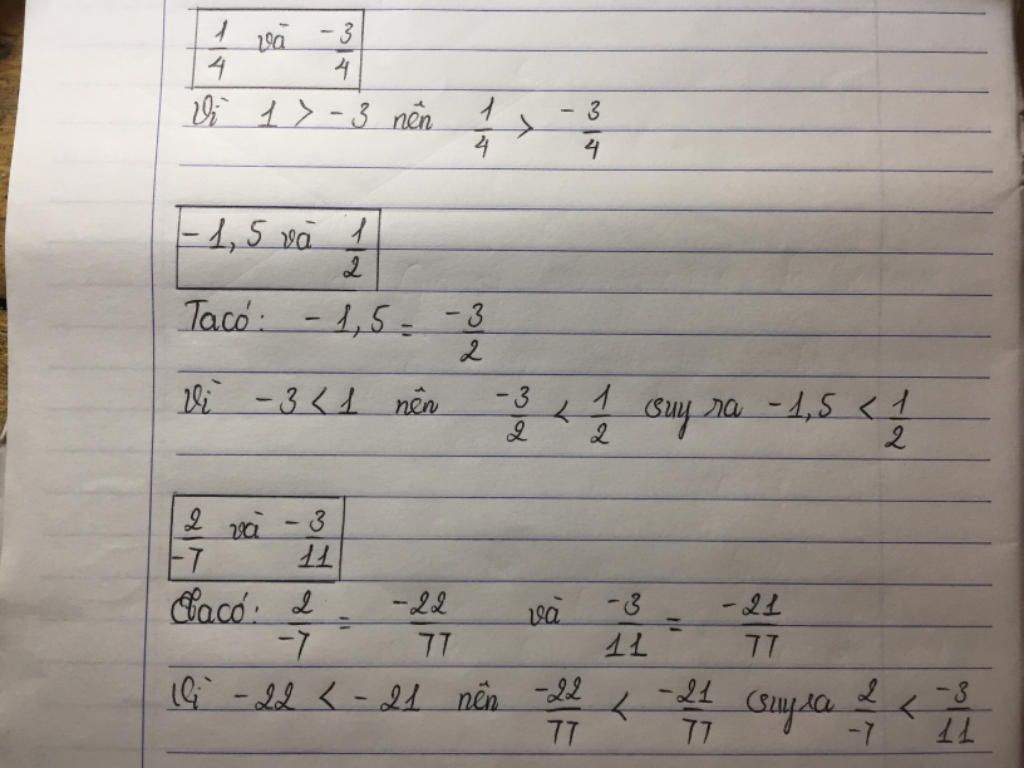 1/4 và -3/4
Vì 1 > -3 nên 1/4 > -3/4
-1,5 và 1/2
Ta có: -1,5 = -3/2
Vì -3 < 1 nên -3/2 < 1/2 suy ra -1,5 < 1/2
2/-7 và -3/11
Ta có: 2/-7 = -22/77 và -3/11 = -21/77
Vì -22 < -21 nên -22/77 < -21/77 suy ra 2/-7 < -3/11